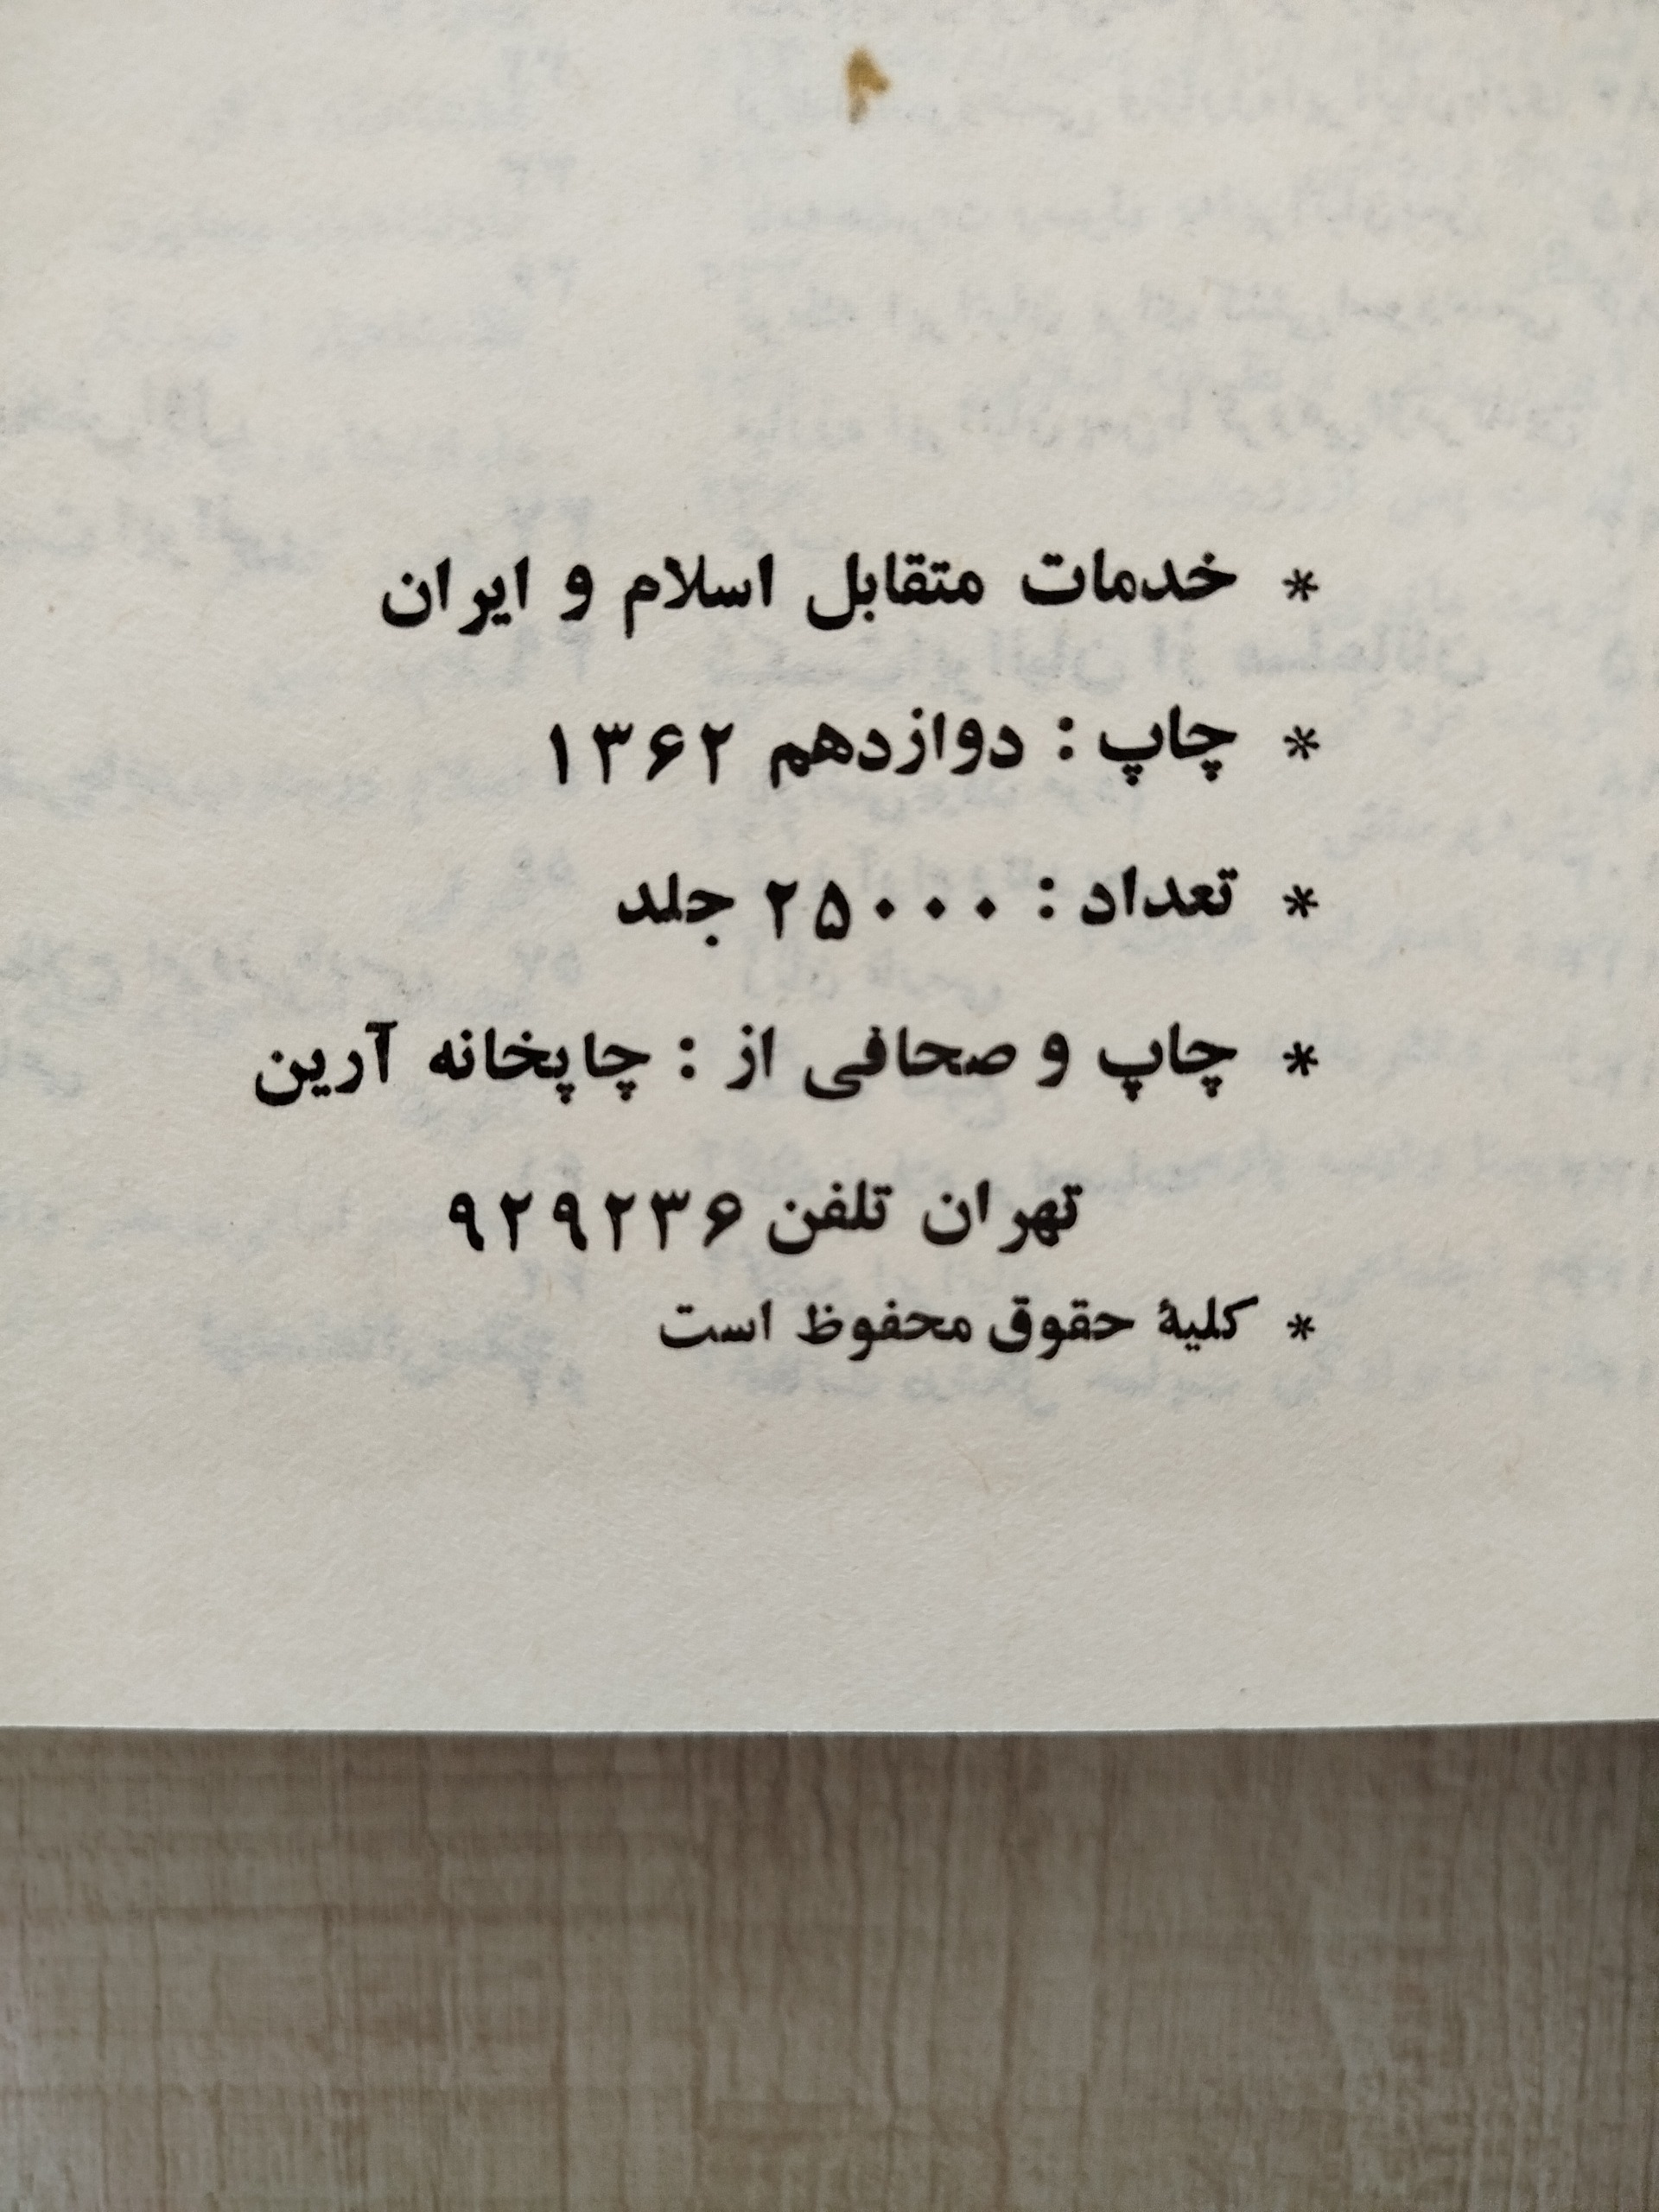 * خدمات متقابل اسلام و ایران
* چاپ : دوازدهم ۱۳۶۲
* تعداد : ۲۵۰۰۰ جلد
* چاپ و صحافی از : چاپخانه آرین
تهران تلفن ۹۲۹۲۳۶
* کلیهٔ حقوق محفوظ است